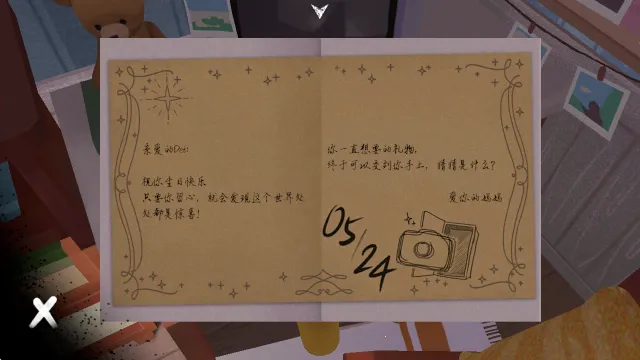 亲爱的Dei:
祝你生日快乐
只要你留心，就会发现这个世界处
处都是惊喜!
你一直想要的礼物，
终于可以交到你手上，猜猜是什么?
爱你的妈妈
05/24
X